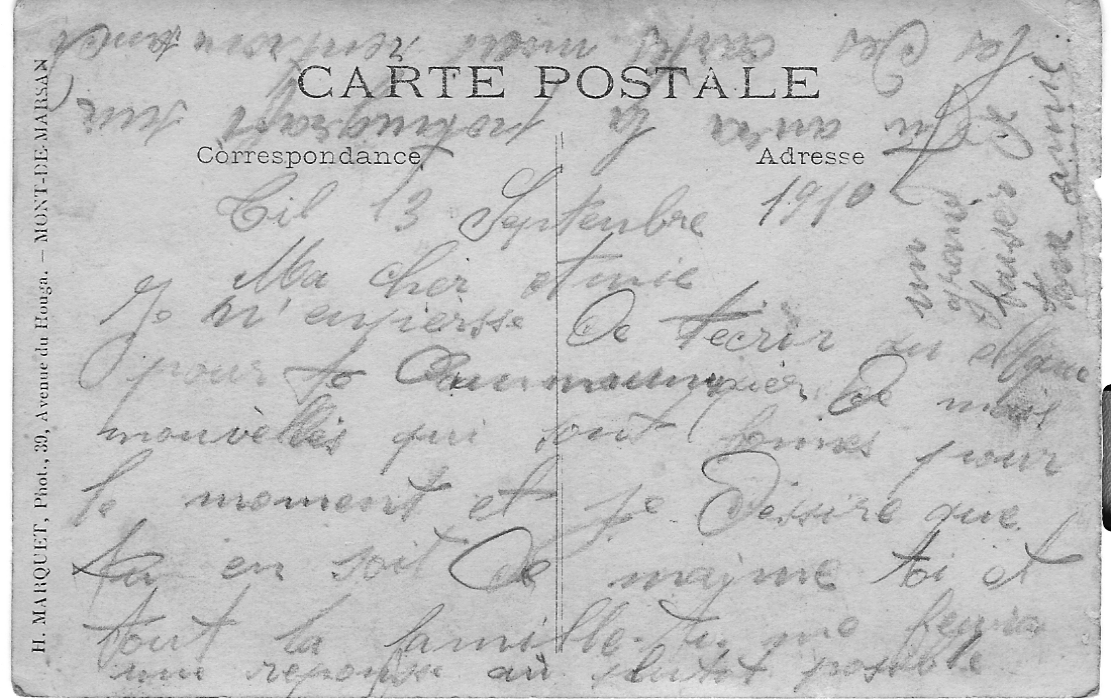 CARTE POSTALE
Correspondance
Adresse
H. MARQUET, Phot., 39, Avenue du Houga. — MONT-DE-MARSAN
Cil 13 Septenbre 1910
Ma cher et mie
Je m'enpiersse De tecrir
pour te De mais
nouvelles qui sont bonnes pour
le moment et je Dessire que
tu en soit De majme toi et
tout la famille. tu me fera
une reponsse au plutot posible
tu aura la sur
les Des cartes mais
un
grand
Baiser
ton amie